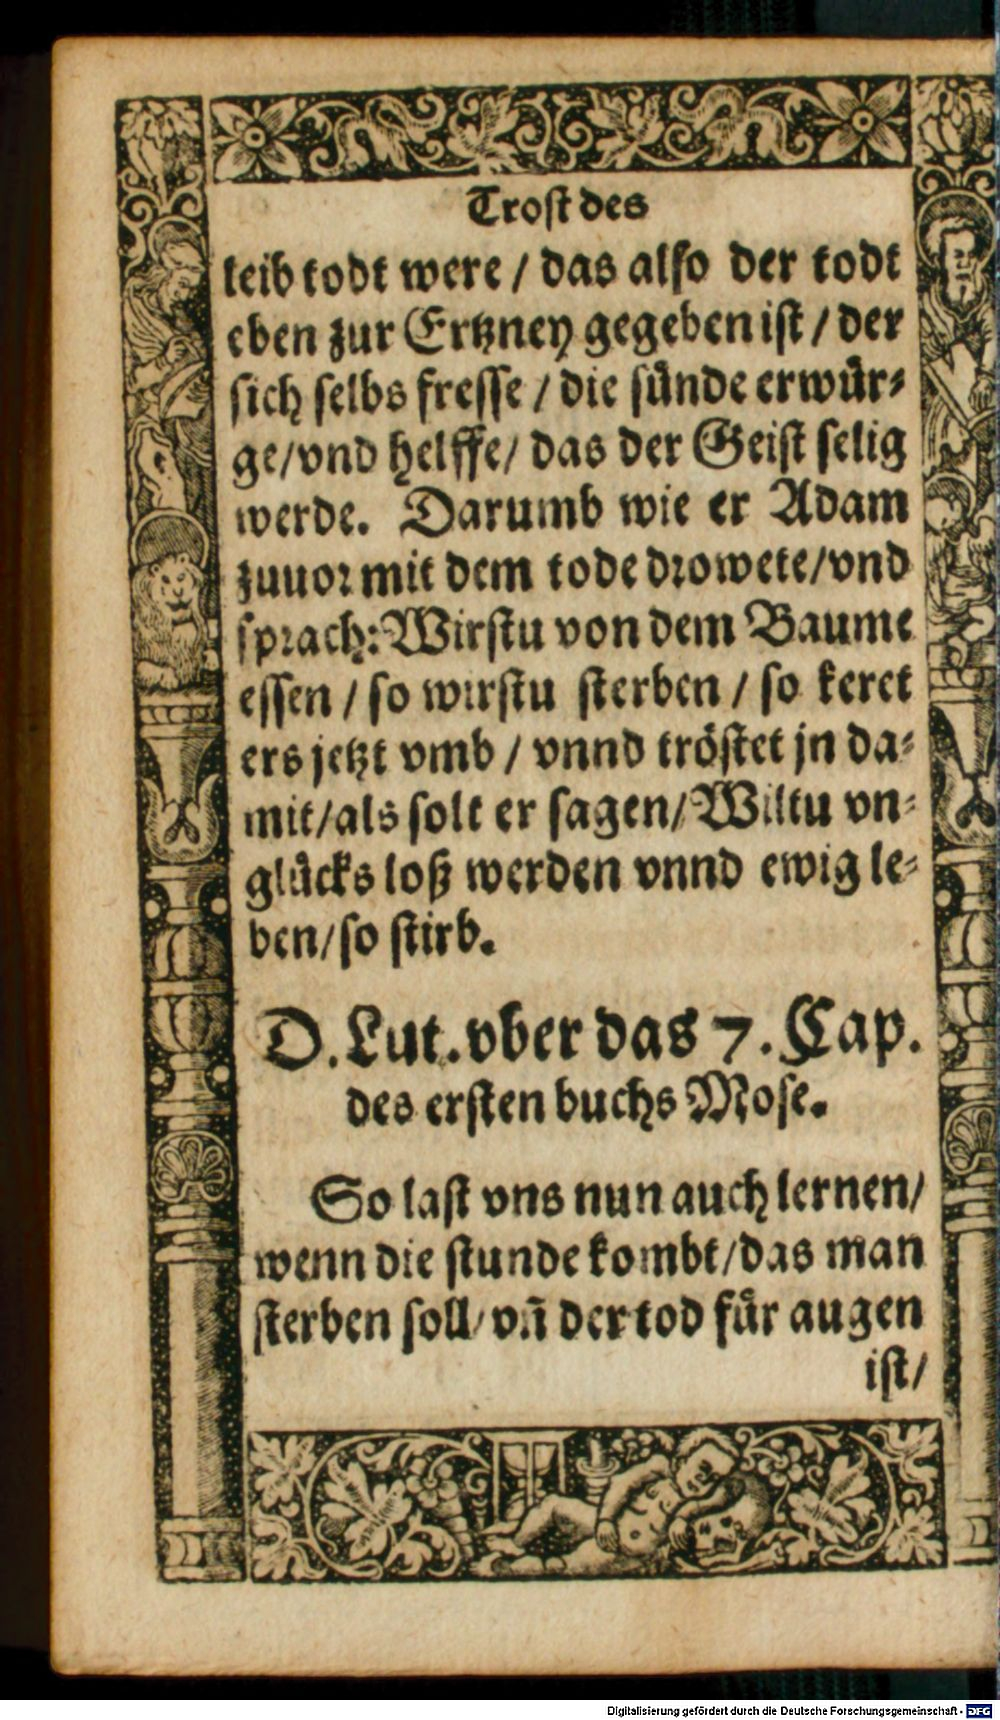 Trost des
leib todt were / das also der todt
eben zur Ertzney gegeben ist / der
sich selbs fresse / die sünde erwür⸗
ge/vnd helffe/ das der Geist selig
werde. Darumb wie er Adam
zuuor mit dem tode drowete/vnd
sprach: Wirstu von dem Baume
essen / so wirstu sterben / so keret
ers jetzt vmb / vnnd tröstet jn da⸗
mit/als solt er sagen/Wiltu vn⸗
glücks loß werden vnnd ewig le⸗
ben/so stirb.
D. Lut. vber das 7. Cap.
des ersten buchs Mose.
So last vns nun auch lernen/
wenn die stunde kombt/das man
sterben soll/vn̄ der tod für augen
ist/
Digitalisierung gefördert durch die Deutsche Forschungsgemeinschaft - DFG